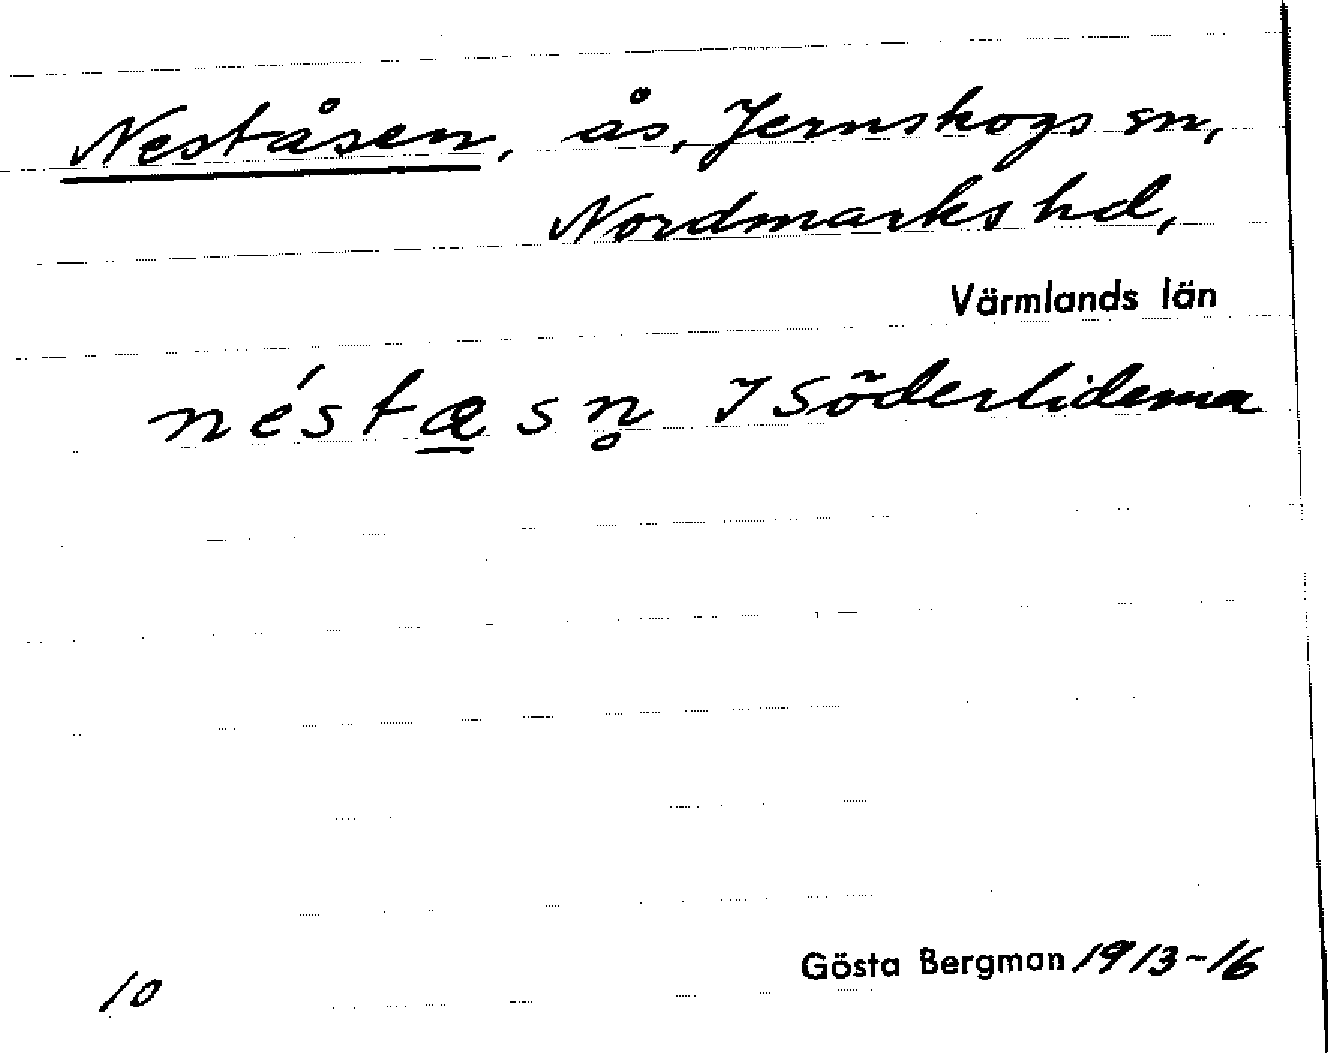 Neståsen, ås, Jernskogs sn,
Nordmarks hd,
Värmlands län
néstæsn̥ I Söderliderna
Gösta Bergman 1913-16
10